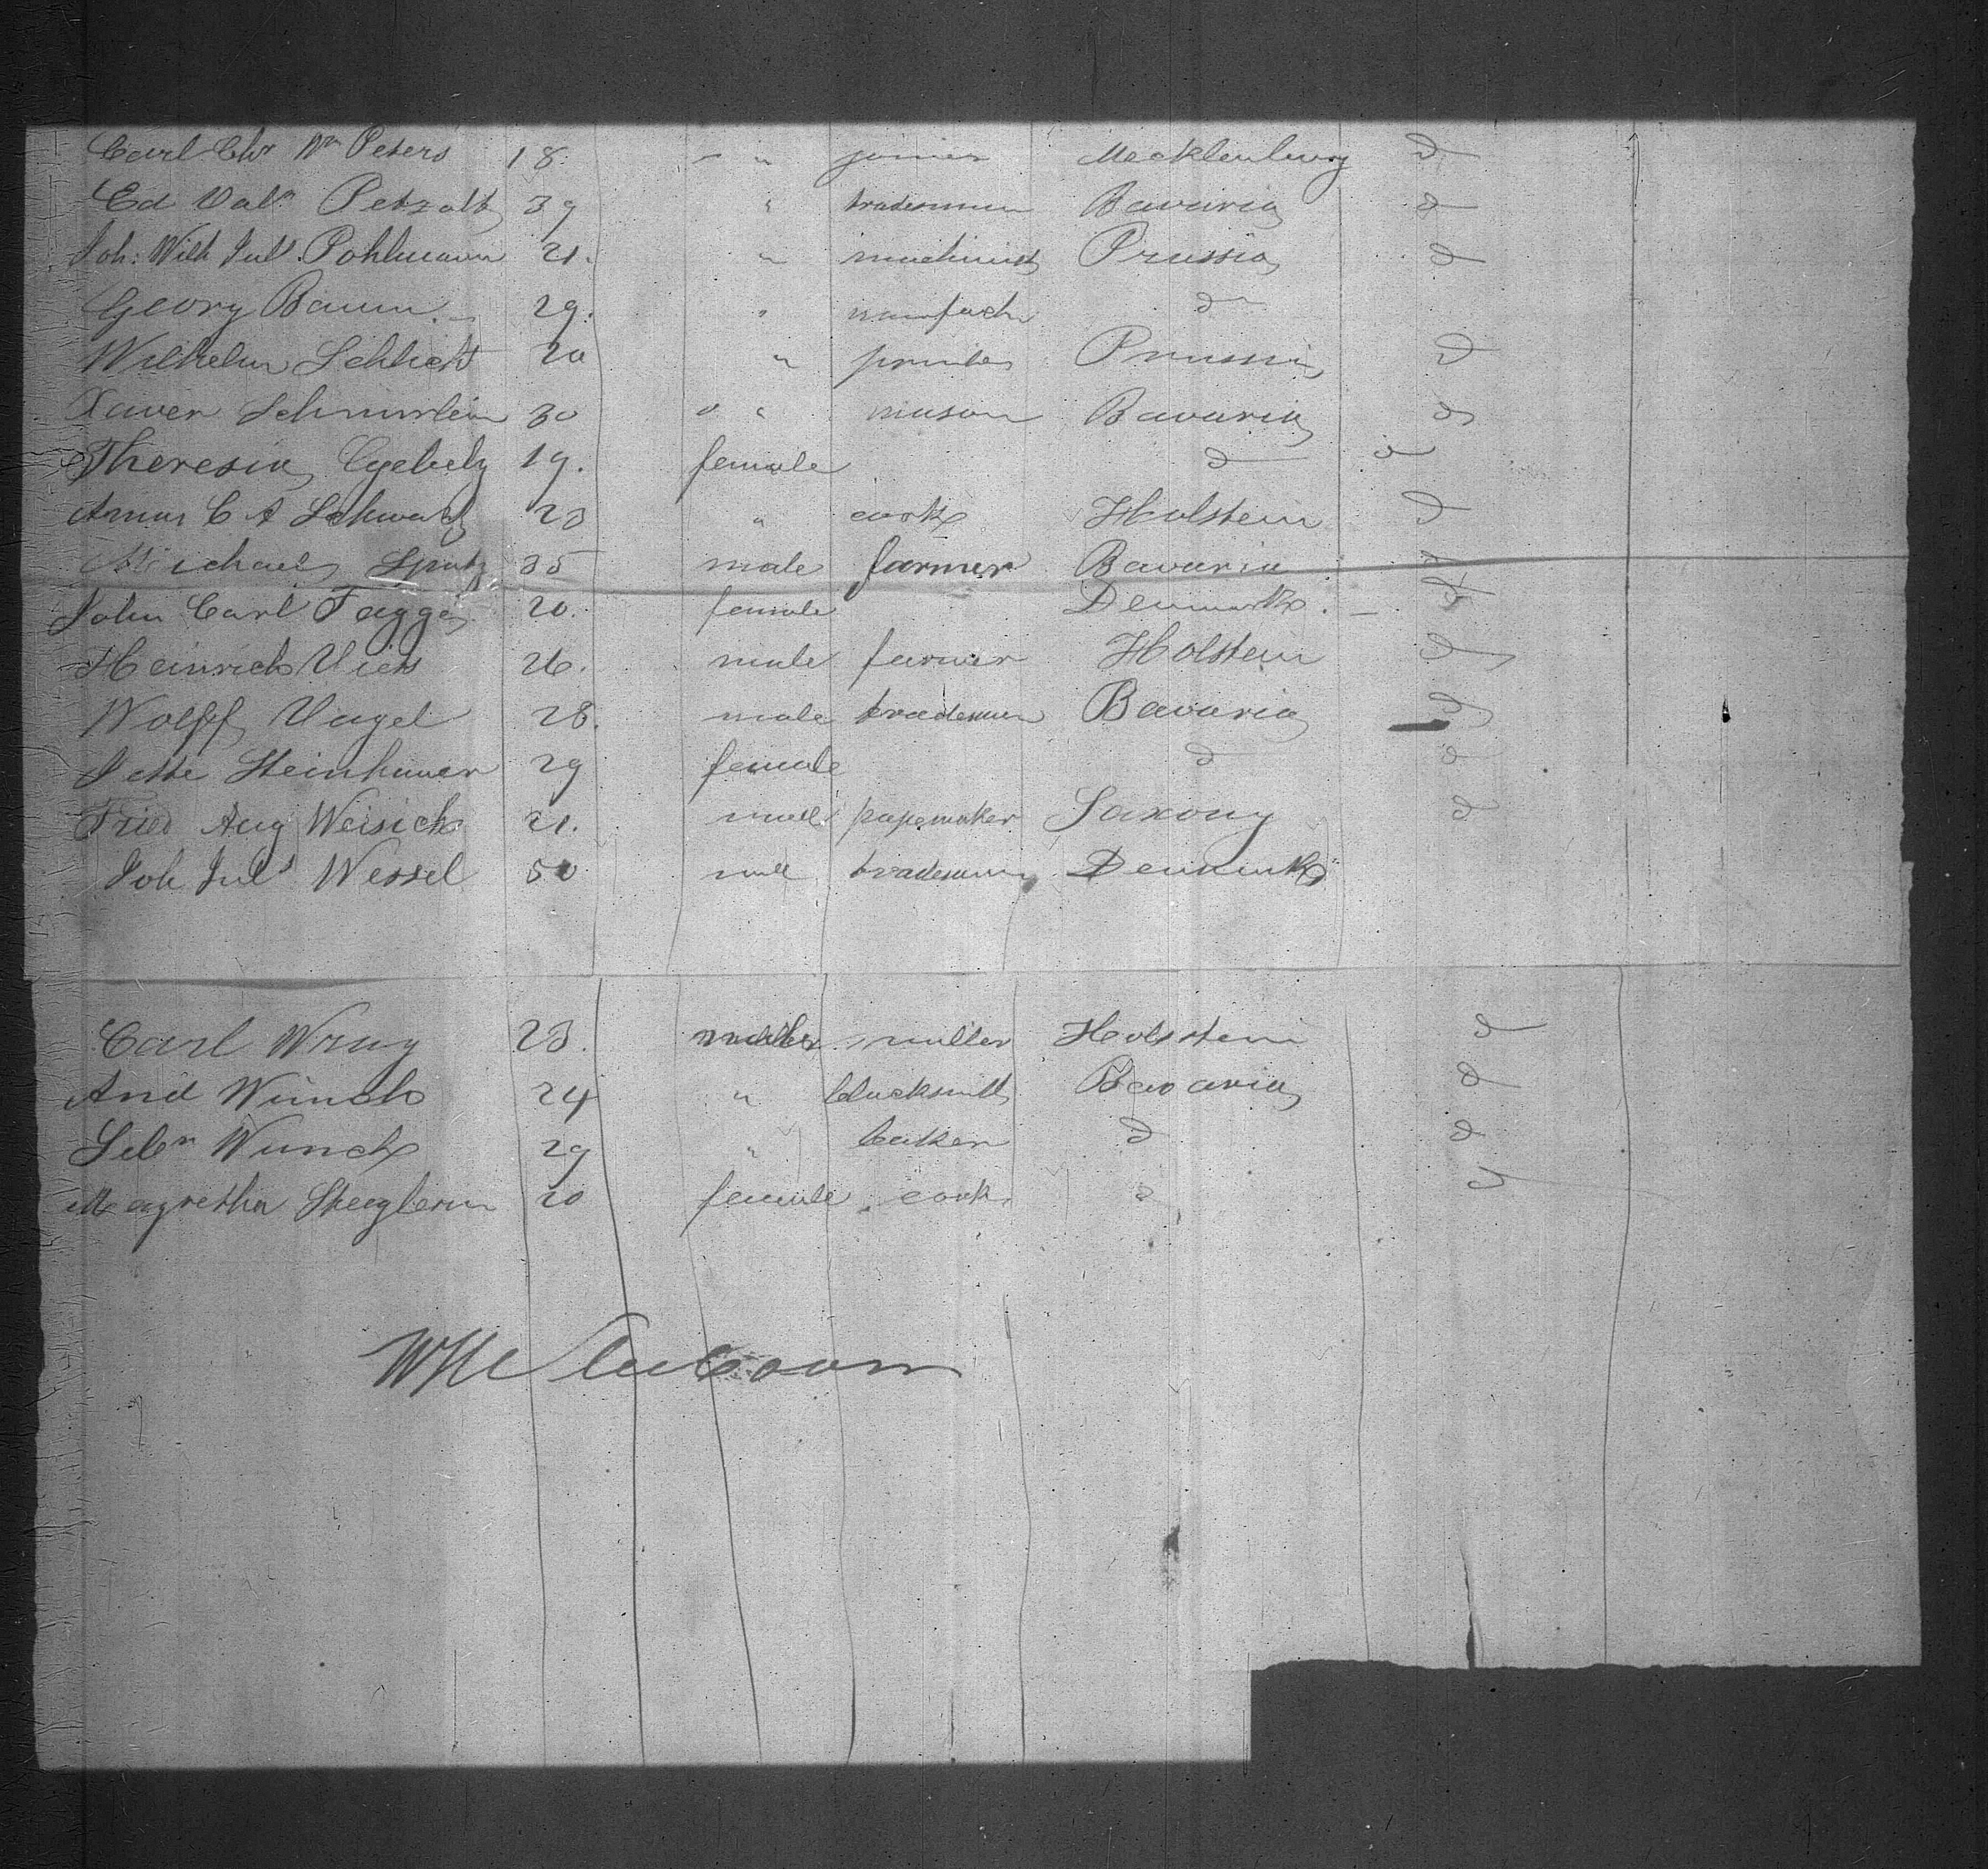 Carl Chr Wm Peters 18 " " joiner Mecklenburg d
Ed Valn Petzolt 39 " tradesman Bavaria d
Joh: Wilh Juls Pohlmann 21. " machinist Prussia d
Georg Baum. 29. " d
Wilhelm Schlicht 20 " printer Prussia d
Xaver 30 " " mason Bavaria d
Theresia 19. female d d
Anna C A Schwartz 23 " cook Holstein d
Michael Spatz 35 male farmer Bavaria d
John Carl Tagge 20. female Denmark. d
Heinrich Vieth 26. male farmer Holstein d
Wolff Vogel 28. male tradesman Bavaria d
Jette Steinhauer 29 female d d
Fried Aug Weisich 21. male papemaker Saxony d
Joh Juls Wessel 50 male tradesman Denmark
Carl Wray 23. miller Holstein d
And Wünch 24 " blacksmith Bavaria d
Sebn Wunch 29 " baker d d
Magretha 20 female cook d d